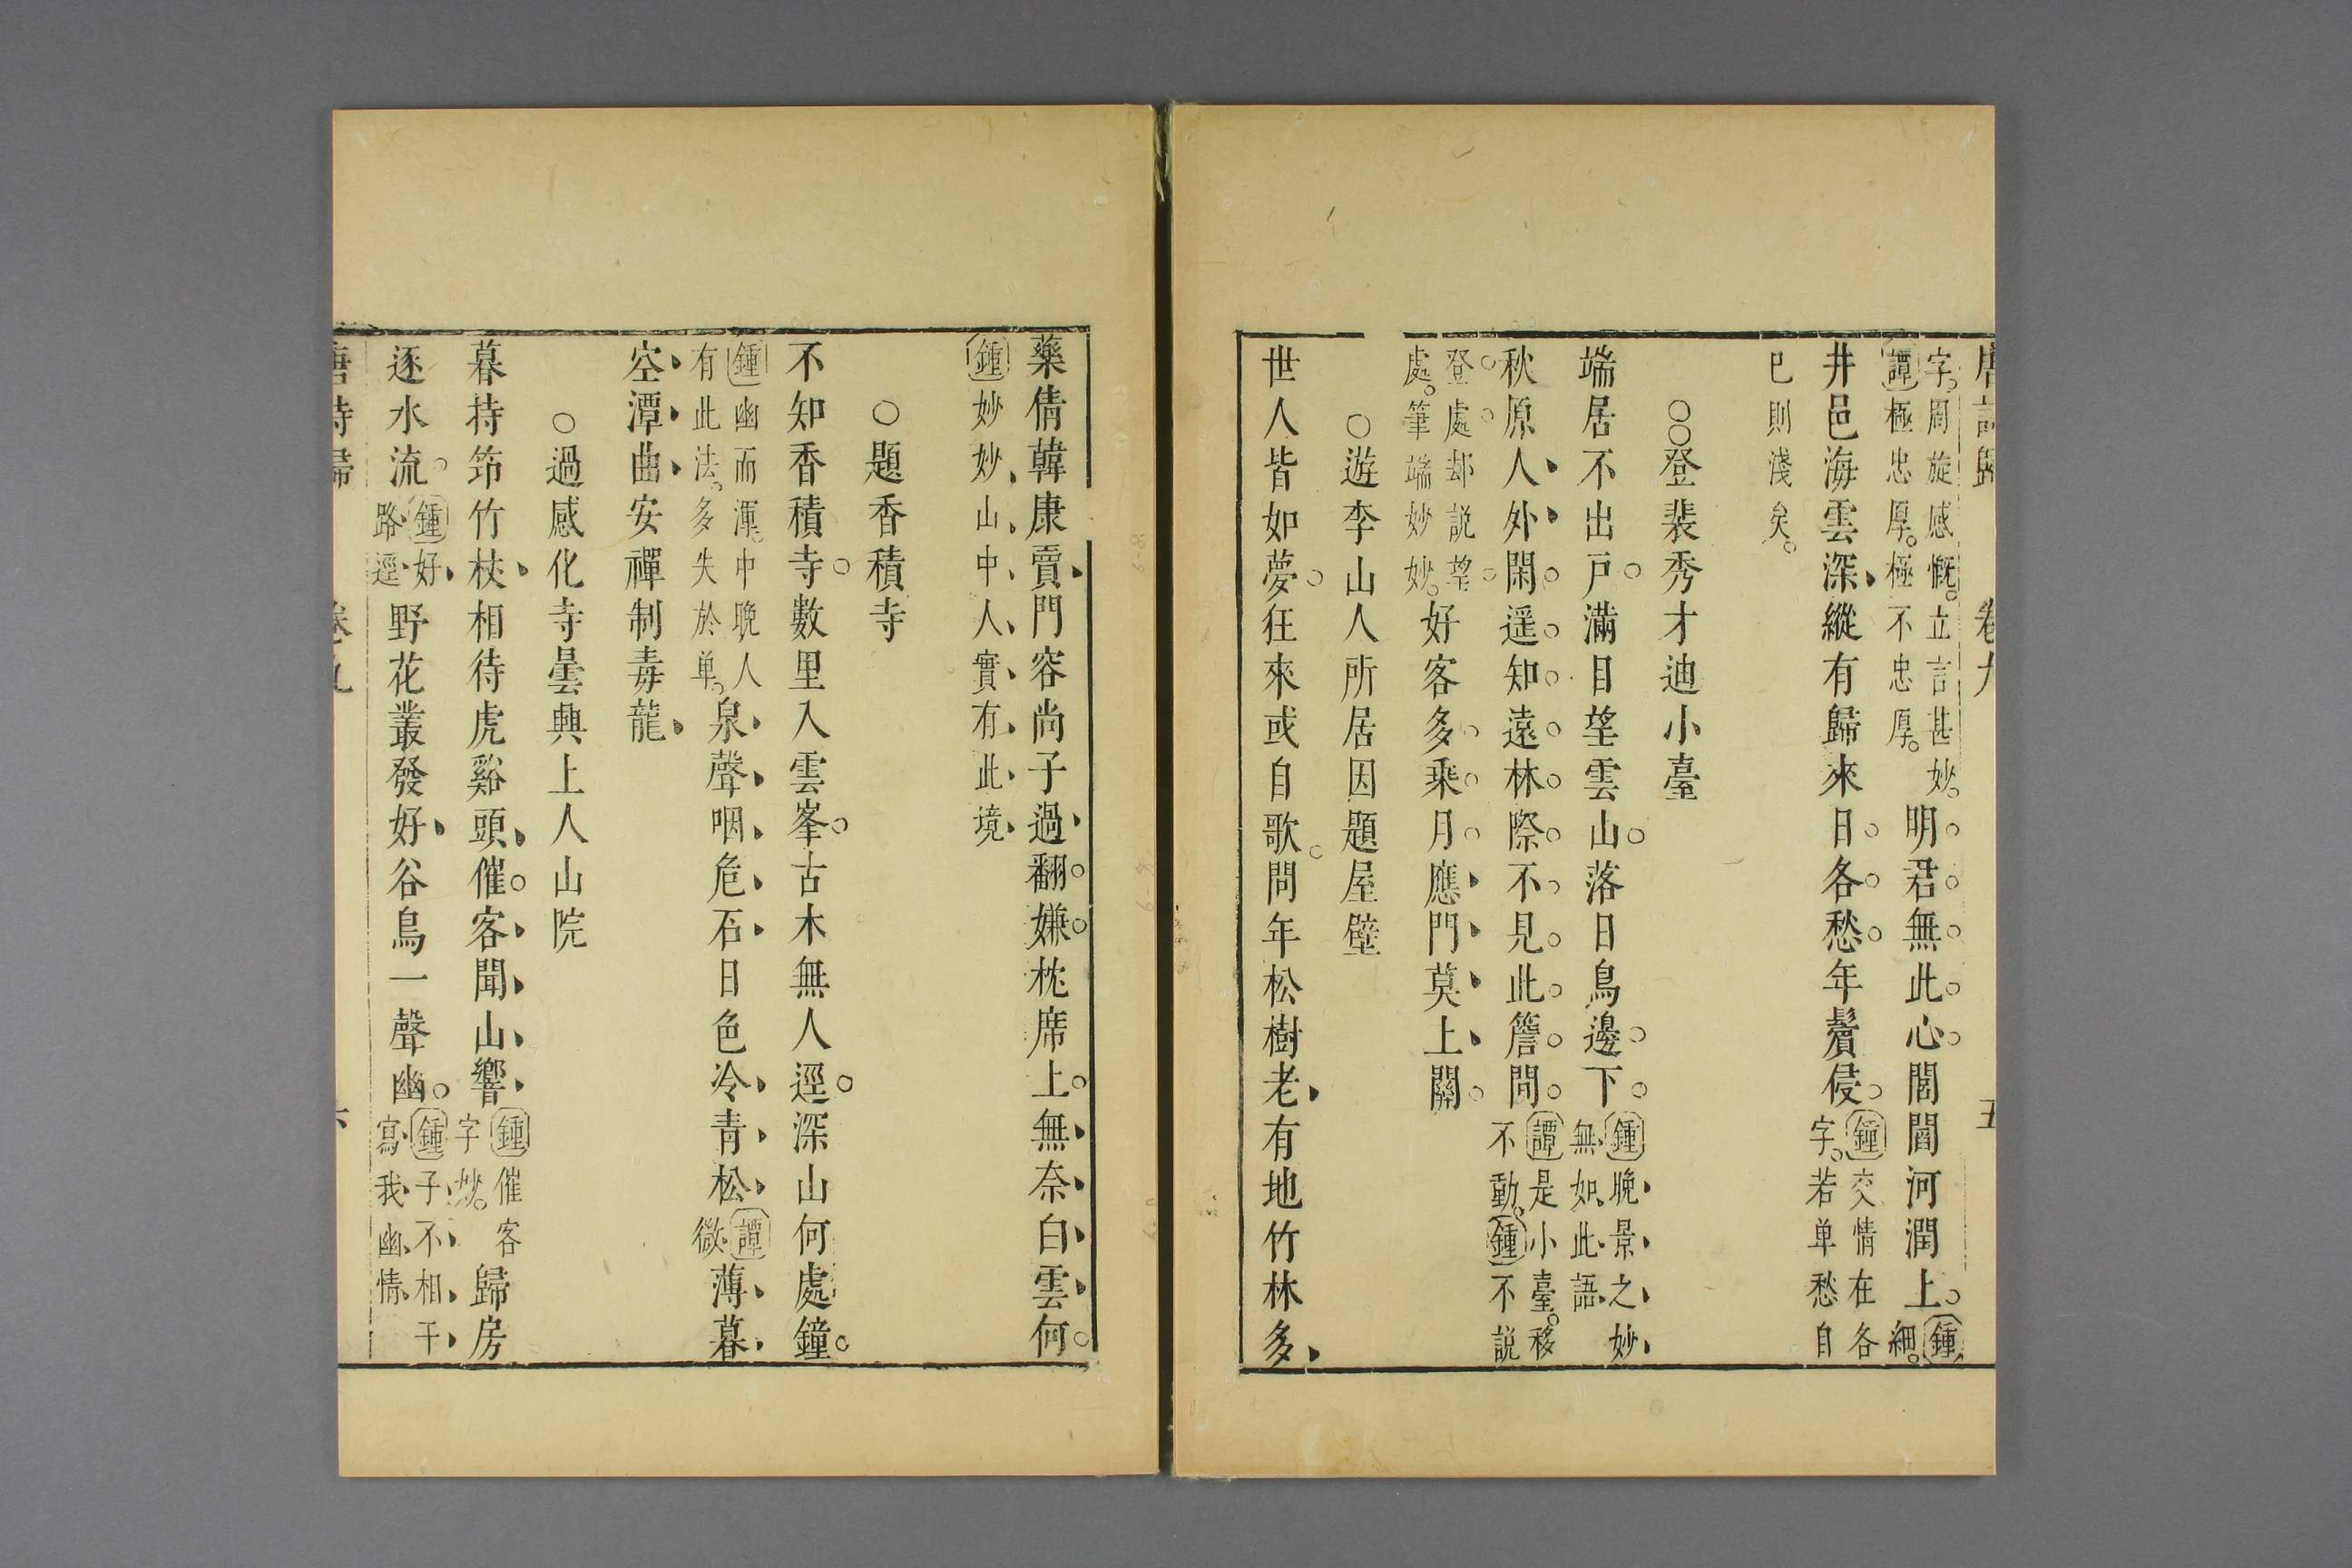 唐詩歸 卷九 五
字。周旋感慨。立言甚妙。
譚極忠厚。極不忠厚。
明君無此心閭閻河潤上。鍾細。
井邑海雲深縱有歸來日各愁年鬢侵。鍾交情在各字。若单愁自
已則淺矣。
○○登裴秀才迪小臺
端居不出戸。滿目望雲山。落日鳥邊下。鍾晚景之妙無如此語
秋原人外閑遥知遠林際不見此簷間譚是小臺。移不動。鍾不説
登處却説望處。筆端妙妙。好客多乘月應門莫上關
○遊李山人所居因題屋壁
世人皆如夢。狂來或自歌。問年松樹老有地竹林多
藥倩韓康賣門容尚子過翻嫌枕席上無奈白雲何
鍾妙妙山中人實有此境
○題香積寺
不知香積寺。數里入雲峯。古木無人逕。深山何處鐘。
鍾幽而渾。中晚人有此法。多失於单。泉聲咽危石日色冷青松譚微薄暮
空潭曲安禪制毒龍
○過感化寺曇興上人山院
暮持笻竹杖相待虎谿頭催客聞山響鍾催客字妙。歸房
逐水流。鍾好路逕野花叢發好谷鳥一聲幽。鍾子不相干寫我幽情
唐詩歸 卷九 六